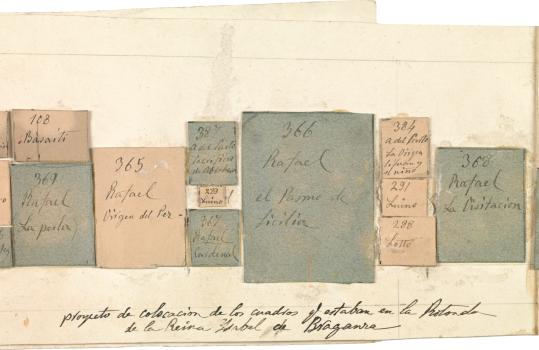 108
Basaiti
369
Rafael
La perla
365
Rafael
Virgen del Pez
387
A del Sarto
Sacrificio
de Abraham
Luino
367
Rafael
Cardenal
366
Rafael
el Pasmo de
Sicilia
384
A del Sarto
La Virgen
el niño
291
Luino
288
Lotto
368
Rafael
La Visitacion
proyecto de colocacion de los cuadros q estaban en la Rotonda
de la Reina Isabel de Braganza